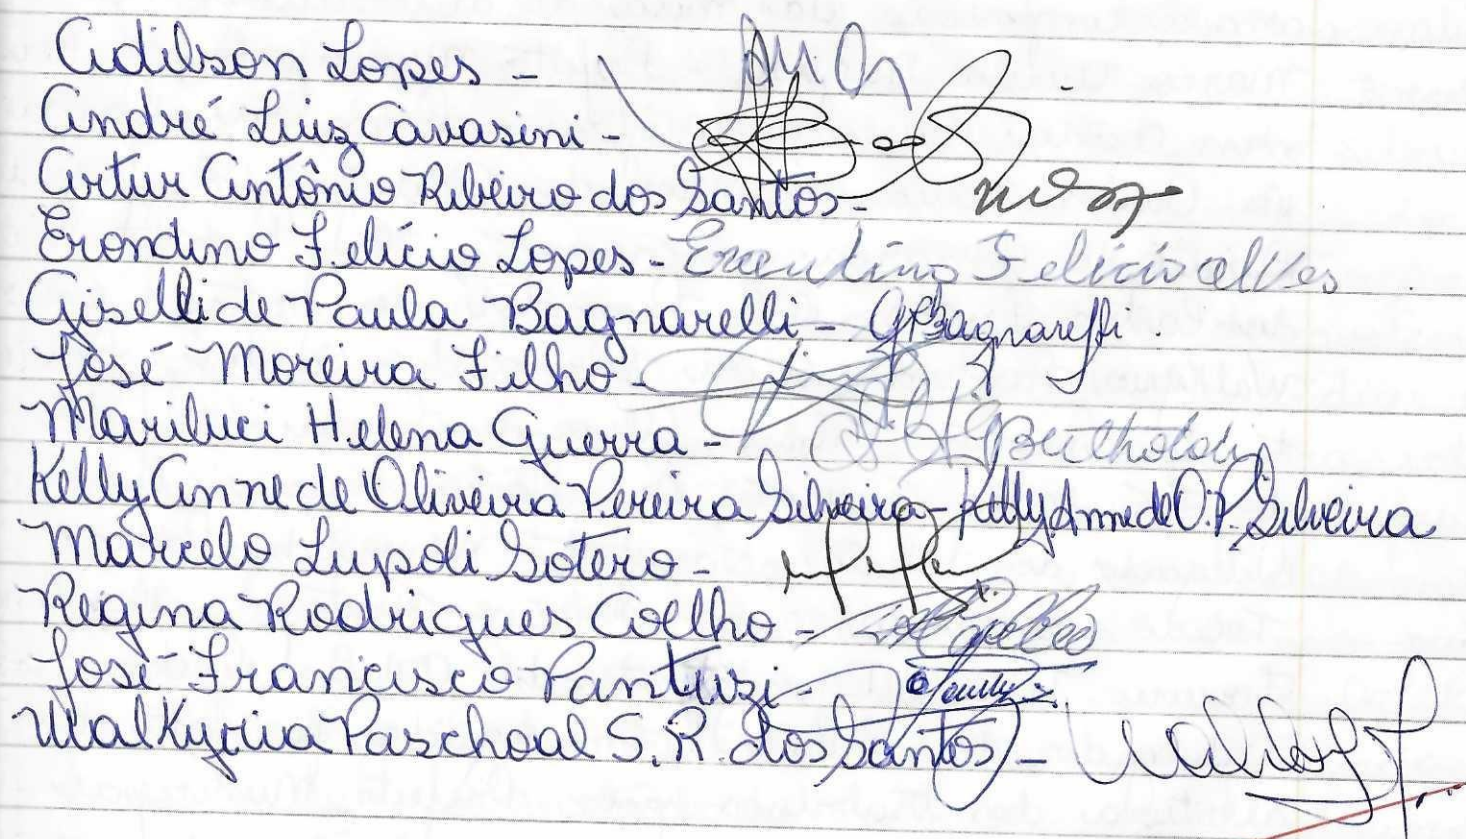 Adilson Lopes -
André Luiz Cavasini -
Artur Antônio Ribeiro dos Santos -
Erondino Felício Lopes - Erondino Felício alves
Giselli de Paula Bagnarelli - GPBagnarelli.
José Moreira Filho -
Mariluci Helena Guerra - Bertholdi
Kelly Anne de Oliveira Pereira Silveira - Kelly Anne de O. P. Silveira
Marcelo Lupoli Sotero -
Regina Rodrigues Coelho - Coelho
José Francisco Pantuzi -
Walkyria Paschoal S. R. dos Santos -